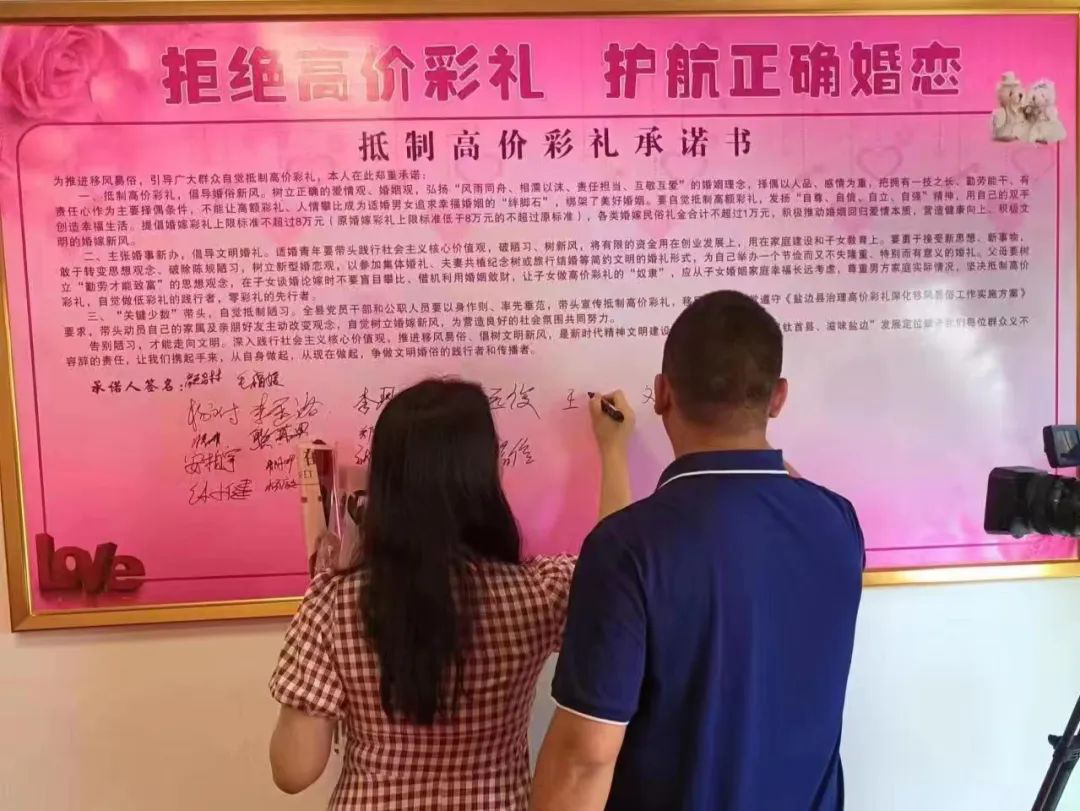 拒绝高价彩礼 护航正确婚恋
抵制高价彩礼承诺书
为推进移风易俗，引导广大群众自觉抵制高价彩礼，本人在此郑重承诺：
一、抵制高价彩礼，倡导婚俗新风。树立正确的爱情观、婚姻观，弘扬“风雨同舟、相濡以沫、责任担当、互敬互爱”的婚姻理念，择偶以人品、感情为重，把拥有一技之长、勤劳能干、有
责任心作为主要择偶条件，不能让高额彩礼、人情攀比成为适婚男女追求幸福婚姻的“绊脚石”，绑架了美好婚姻。要自觉抵制高额彩礼，发扬“自尊、自信、自立、自强”精神，用自己的双手
创造幸福生活。提倡婚嫁彩礼上限标准不超过8万元（原婚嫁彩礼上限标准低于8万元的不超过原标准），各类婚嫁民俗礼金合计不超过1万元，积极推动婚姻回归爱情本质，营造健康向上、积极文
明的婚嫁新风。
二、主张婚事新办，倡导文明婚礼。适婚青年要带头践行社会主义核心价值观，破陋习、树新风，将有限的资金用在创业发展上，用在家庭建设和子女教育上。要勇于接受新思想、新事物，
敢于转变思想观念、破除陈规陋习，树立新型婚恋观，以参加集体婚礼、夫妻共植纪念树或旅行结婚等简约文明的婚礼形式，为自己举办一个节俭而又不失隆重、特别而有意义的婚礼。父母要树
立“勤劳才能致富”的思想观念，在子女谈婚论嫁时不要盲目攀比、借机利用婚姻敛财，让子女做高价彩礼的“奴隶”，应从子女婚姻家庭幸福长远考虑，尊重男方家庭实际情况，坚决抵制高价
彩礼，自觉做低彩礼的践行者，零彩礼的先行者。
三、“关键少数”带头，自觉抵制陋习。全县党员干部和公职人员要以身作则、率先垂范，带头宣传抵制高价彩礼，移 遵守《盐边县治理高价彩礼深化移风易俗工作实施方案》
要求，带头动员自己的家属及亲朋好友主动改变观念，自觉树立婚嫁新风，为营造良好的社会氛围共同努力。
告别陋习，才能走向文明。深入践行社会主义核心价值观，推进移风易俗、倡树文明新风，是新时代精神文明建设 钛首县、滋味盐边”发展定位 我们每位群众义不
容辞的责任，让我们携起手来，从自身做起，从现在做起，争做文明婚俗的践行者和传播者。
承诺人签名：
王
love